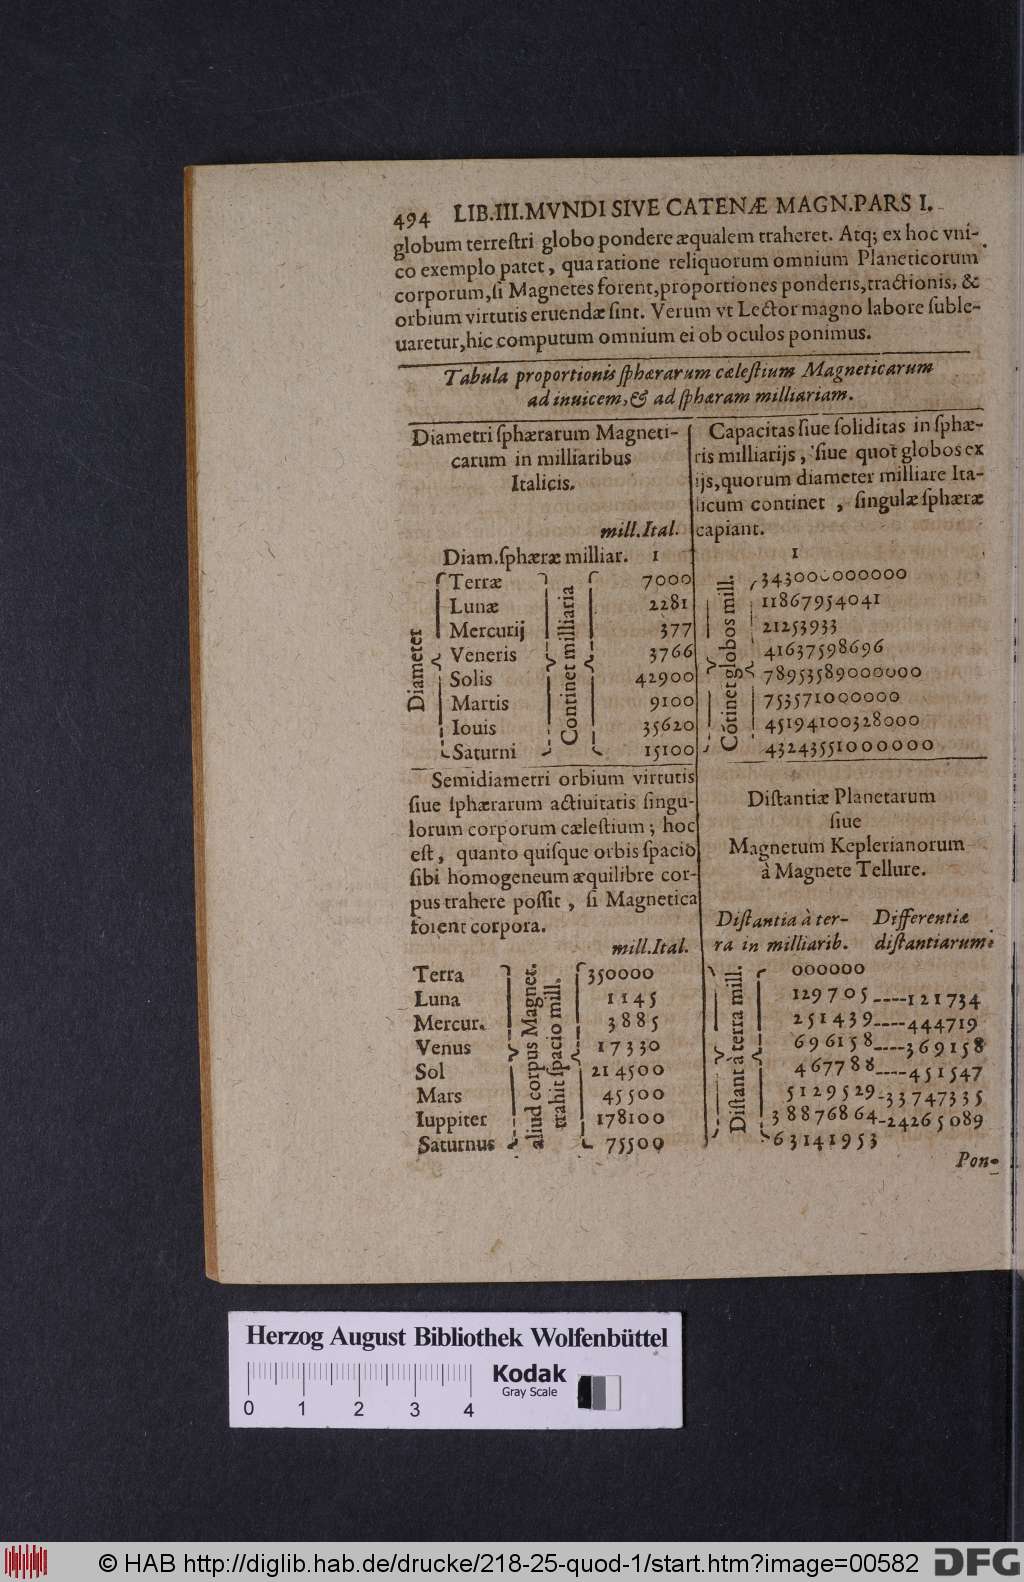 494 LIB.III.MVNDI SIVE CATENÆ MAGN.PARS I.
globum terreſtri globo pondere æqualem traheret. Atq; ex hoc vni-
co exemplo patet, qua ratione reliquorum omnium Planeticorum
corporum,ſi Magnetes forent,proportiones ponderis,tractionis, &
orbium virtutis eruendæ ſint. Verum vt Lector magno labore ſuble-
uaretur,hic computum omnium ei ob oculos ponimus.
Tabula proportionis ſphærarum cæleſtium Magneticarum
ad inuicem,& ad ſphæram milliariam.
Diametri ſphærarum Magneti-
carum in milliaribus
Italicis.
mill.Ital.
Diam.ſphæræ milliar. 1
Diameter
Terræ 7000
Lunæ 2281
Mercurij 377
Veneris 3766
Solis 42900
Martis 9100
Iouis 35620
Saturni 15100
Continet milliaria
Capacitas ſiue ſoliditas in ſphæ-
ris milliarijs, ſiue quot globos ex
ijs,quorum diameter milliare Ita-
licum continet, ſingulæ ſphæræ
capiant.
1
Cōtinet globos mill.
343000000000
11867954041
21253933
41637598696
78953589000000
753571000000
45194100328000
43243551000000
Semidiametri orbium virtutis
ſiue ſphærarum actiuitatis ſingu-
lorum corporum cæleſtium; hoc
eſt, quanto quiſque orbis ſpacio
ſibi homogeneum æquilibre cor-
pus trahere poſſit, ſi Magnetica
forent corpora.
mill.Ital.
Terra 350000
Luna 1145
Mercur. 3885
Venus 17330
Sol 214500
Mars 45500
Iuppiter 178100
Saturnus 75500
aliud corpus Magnet.
trahit ſpacio mill.
Diſtantiæ Planetarum
ſiue
Magnetum Keplerianorum
à Magnete Tellure.
Diſtantia à ter- Differentiæ
ra in milliarib. diſtantiarum:
Diſtant à terra mill.
000000
129705----121734
251439----444719
696158----369158
467788----451547
5129529-33747335
38876864-24265089
63141953
Pon-
Herzog August Bibliothek Wolfenbüttel
Kodak
Gray Scale
0 1 2 3 4
© HAB http://diglib.hab.de/drucke/218-25-quod-1/start.htm?image=00582
DFG